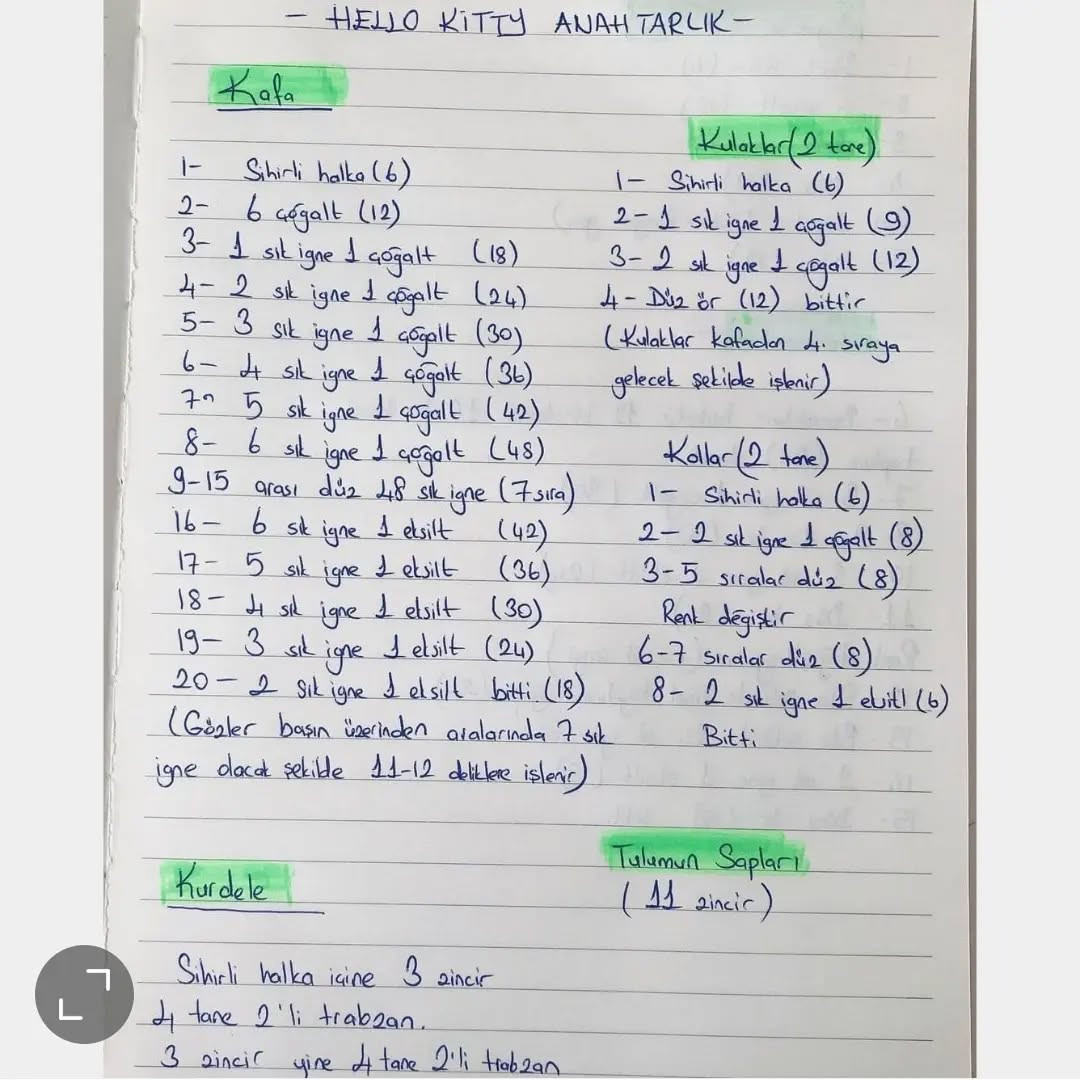 - HELLO KİTTY ANAHTARLIK -
Kafa
1- Sihirli halka (6)
2- 6 çoğalt (12)
3- 1 sık iğne 1 çoğalt (18)
4- 2 sık iğne 1 çoğalt (24)
5- 3 sık iğne 1 çoğalt (30)
6- 4 sık iğne 1 çoğalt (36)
7- 5 sık iğne 1 çoğalt (42)
8- 6 sık iğne 1 çoğalt (48)
9-15 arası düz 48 sık iğne (7 sıra)
16- 6 sık iğne 1 eksilt (42)
17- 5 sık iğne 1 eksilt (36)
18- 4 sık iğne 1 eksilt (30)
19- 3 sık iğne 1 eksilt (24)
20- 2 sık iğne 1 eksilt bitti (18)
(Gözler başın üzerinden aralarında 7 sık
iğne olacak şekilde 11-12 deliklere işlenir)
Kulaklar (2 tane)
1- Sihirli halka (6)
2- 1 sık iğne 1 çoğalt (9)
3- 2 sık iğne 1 çoğalt (12)
4- Düz ör (12) bittir
(Kulaklar kafadan 4. sıraya
gelecek şekilde işlenir)
Kollar (2 tane)
1- Sihirli halka (6)
2- 2 sık iğne 1 çoğalt (8)
3-5 sıralar düz (8)
Renk değiştir
6-7 sıralar düz (8)
8- 2 sık iğne 1 (6)
Bitti
Kurdele
Sihirli halka içine 3 zincir
4 tane 2'li trabzan.
3 zincir yine 4 tane 2'li trabzan
Tulumun Sapları
(11 zincir)